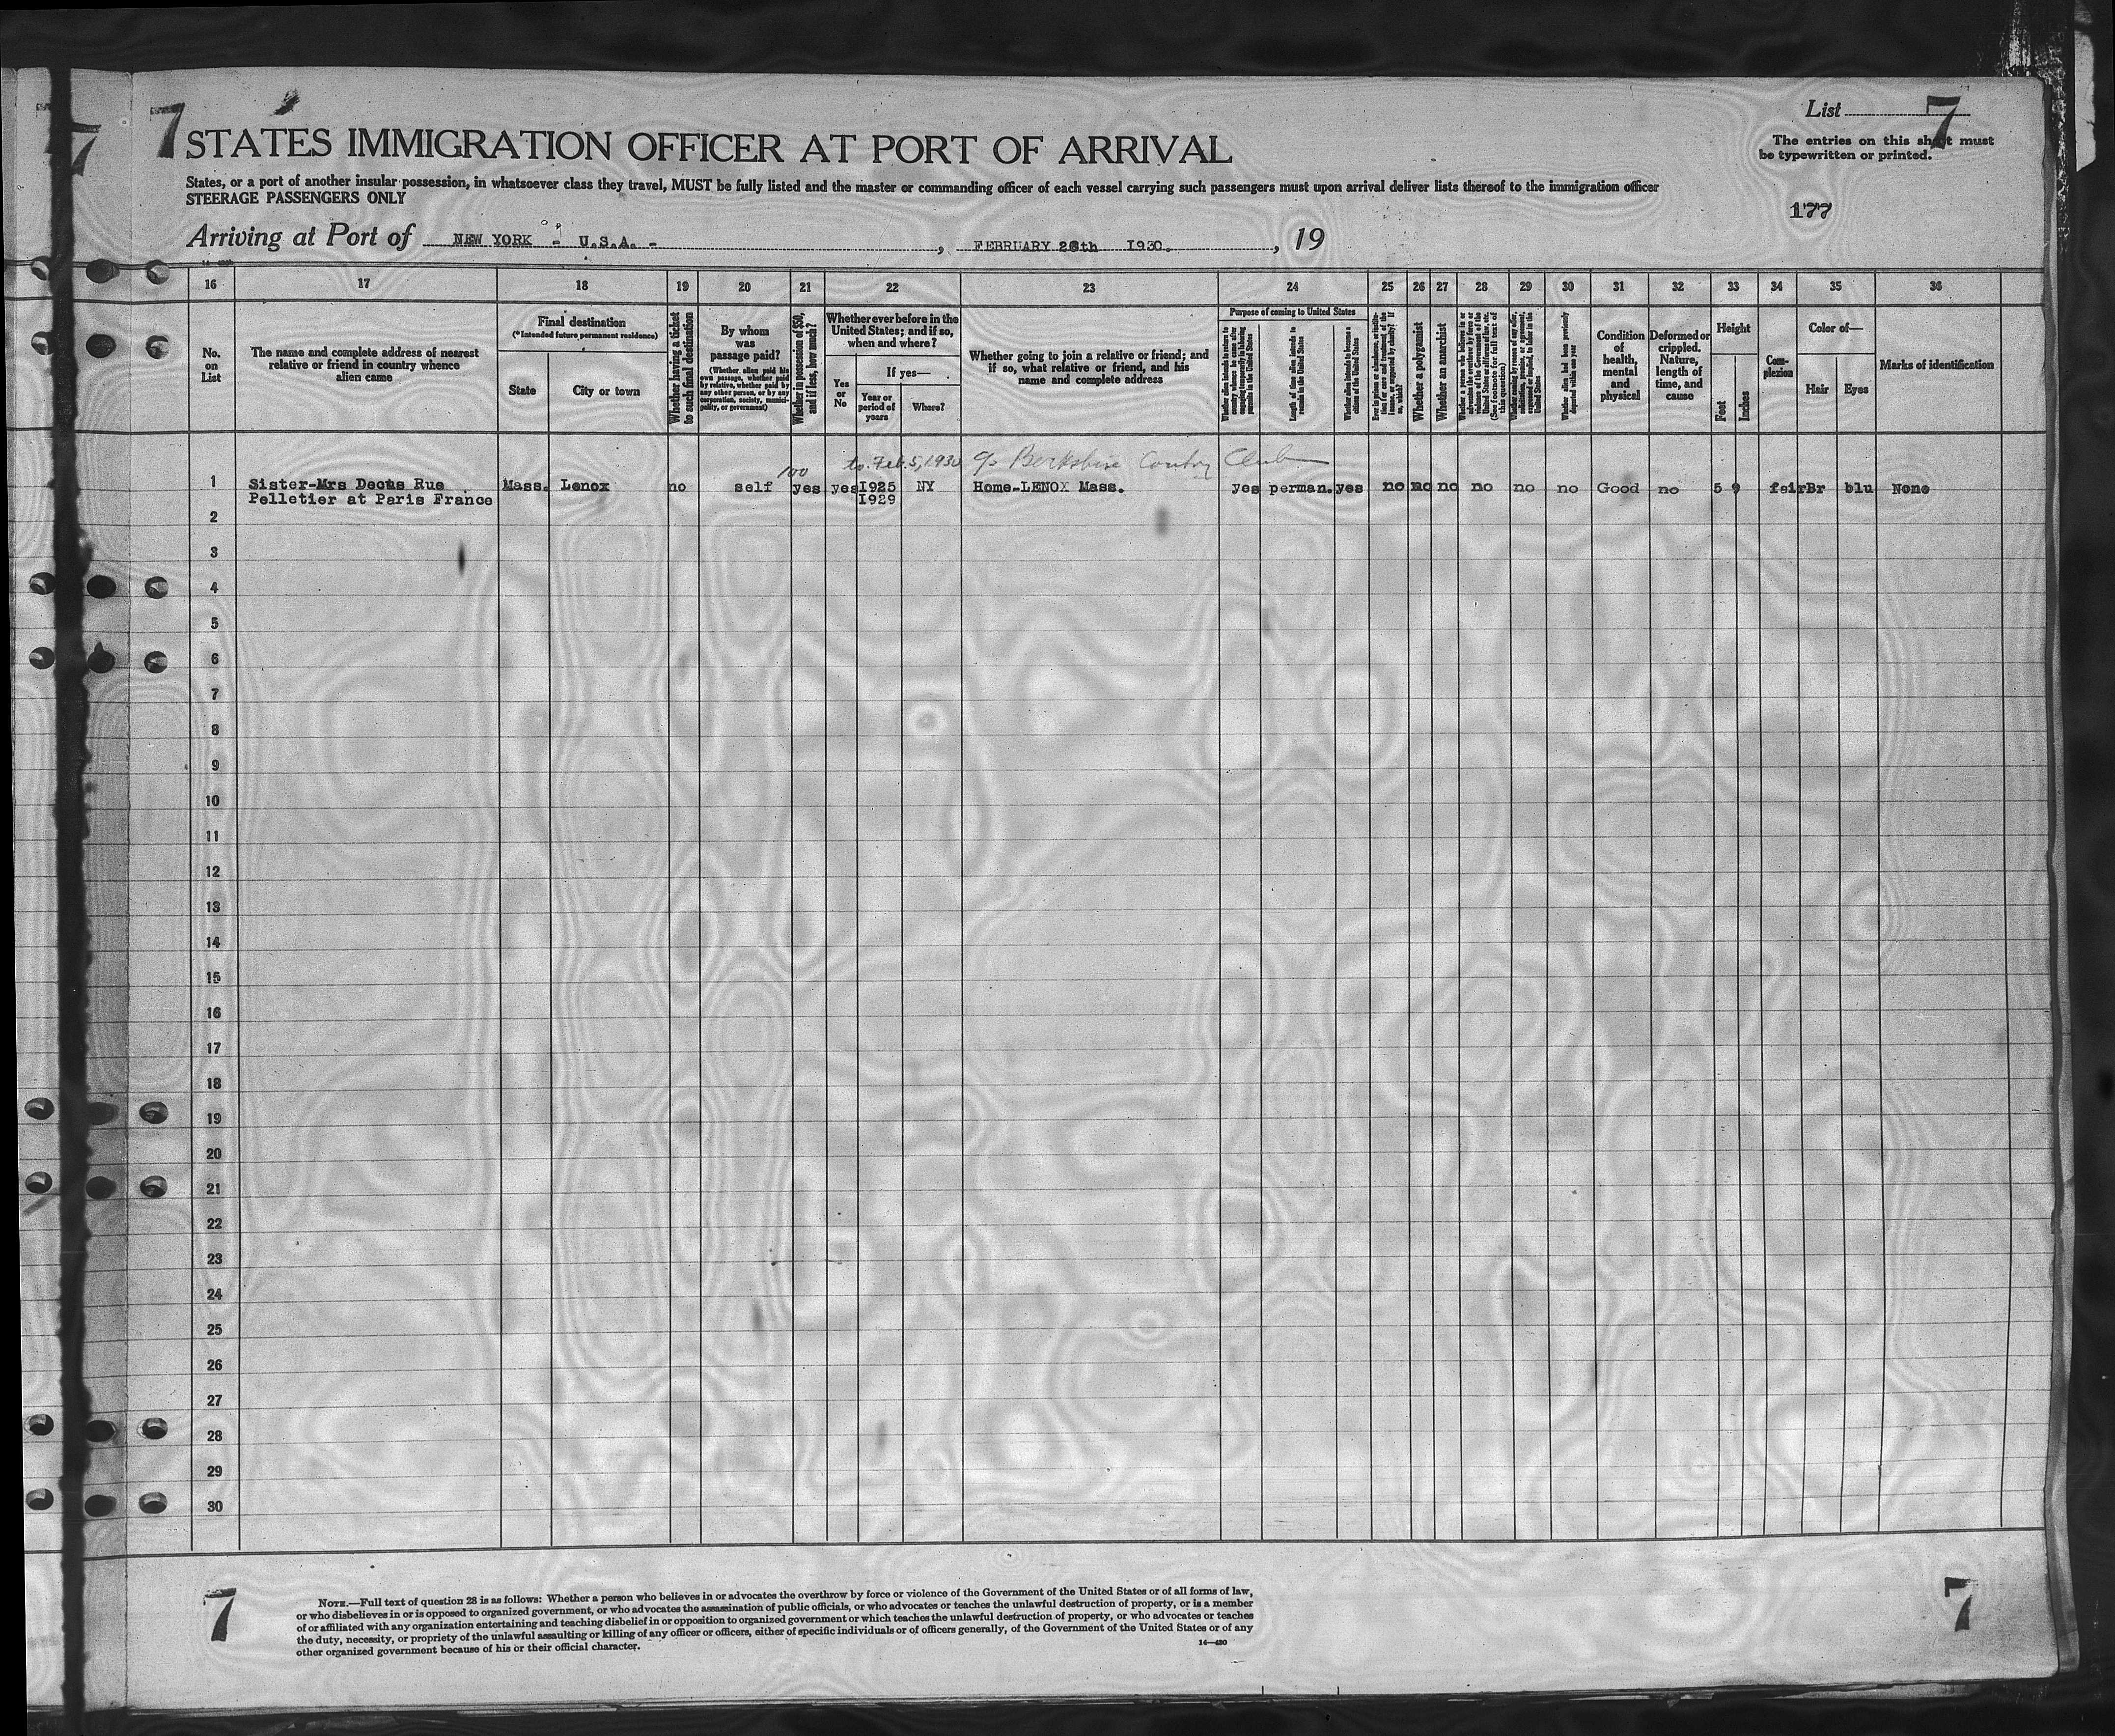 7 STATES IMMIGRATION OFFICER AT PORT OF ARRIVAL
List 7
The entries on this sheet must
be typewritten or printed.
States, or a port of another insular possession, in whatsoever class they travel, MUST be fully listed and the master or commanding officer of each vessel carrying such passengers must upon arrival deliver lists thereof to the immigration officer
STEERAGE PASSENGERS ONLY
177
Arriving at Port of NEW YORK - U.S.A. - , FEBRUARY 28th 1930. , 19
16 17 18 19 20 21 22 23 24 25 26 27 28 29 30 31 32 33 34 35 36
No.
on
List
The name and complete address of nearest
relative or friend in country whence
alien came
Final destination
(*Intended future permanent residence)
State
City or town
Whether having a ticket
to such final destination
By whom
was
passage paid?
(Whether alien paid his
own passage, whether paid
by relative, whether paid by
any other person, or by any
corporation, society, munici-
pality, or government)
Whether in possession of $50,
and if less, how much?
Whether ever before in the
United States; and if so,
when and where?
Yes
or
No
If yes—
Year or
period of
years
Where?
Whether going to join a relative or friend; and
if so, what relative or friend, and his
name and complete address
Purpose of coming to United States
Whether alien intends to return to
country whence he came after
engaging temporarily in laboring
pursuits in the United States
Length of time alien intends to
remain in the United States
Whether alien intends to become a
citizen of the United States
Whether a polygamist
Whether an anarchist
(See footnote for full text of
this question)
Whether alien had been previously
deported within one year
Condition
of
health,
mental
and
physical
Deformed or
crippled.
Nature,
length of
time, and
cause
Height
Feet
Inches
Com-
plexion
Color of—
Hair
Eyes
Marks of identification
100 to Feb. 5, 1930 c/o Berkshire Contry Club
1 Sister-Mrs Decus Rue Mass. Lenox no self yes yes 1925 NY Home-LENOX Mass. yes perman. yes no no no no no no Good no 5 9 fair Br blu None
Pelletier at Paris France 1929
2
3
4
5
6
7
8
9
10
11
12
13
14
15
16
17
18
19
20
21
22
23
24
25
26
27
28
29
30
7
NOTE.—Full text of question 28 is as follows: Whether a person who believes in or advocates the overthrow by force or violence of the Government of the United States or of all forms of law,
or who disbelieves in or is opposed to organized government, or who advocates the assassination of public officials, or who advocates or teaches the unlawful destruction of property, or is a member
of or affiliated with any organization entertaining and teaching disbelief in or opposition to organized government or which teaches the unlawful destruction of property, or who advocates or teaches
the duty, necessity, or propriety of the unlawful assaulting or killing of any officer or officers, either of specific individuals or of officers generally, of the Government of the United States or of any
other organized government because of his or their official character.
14—430
7